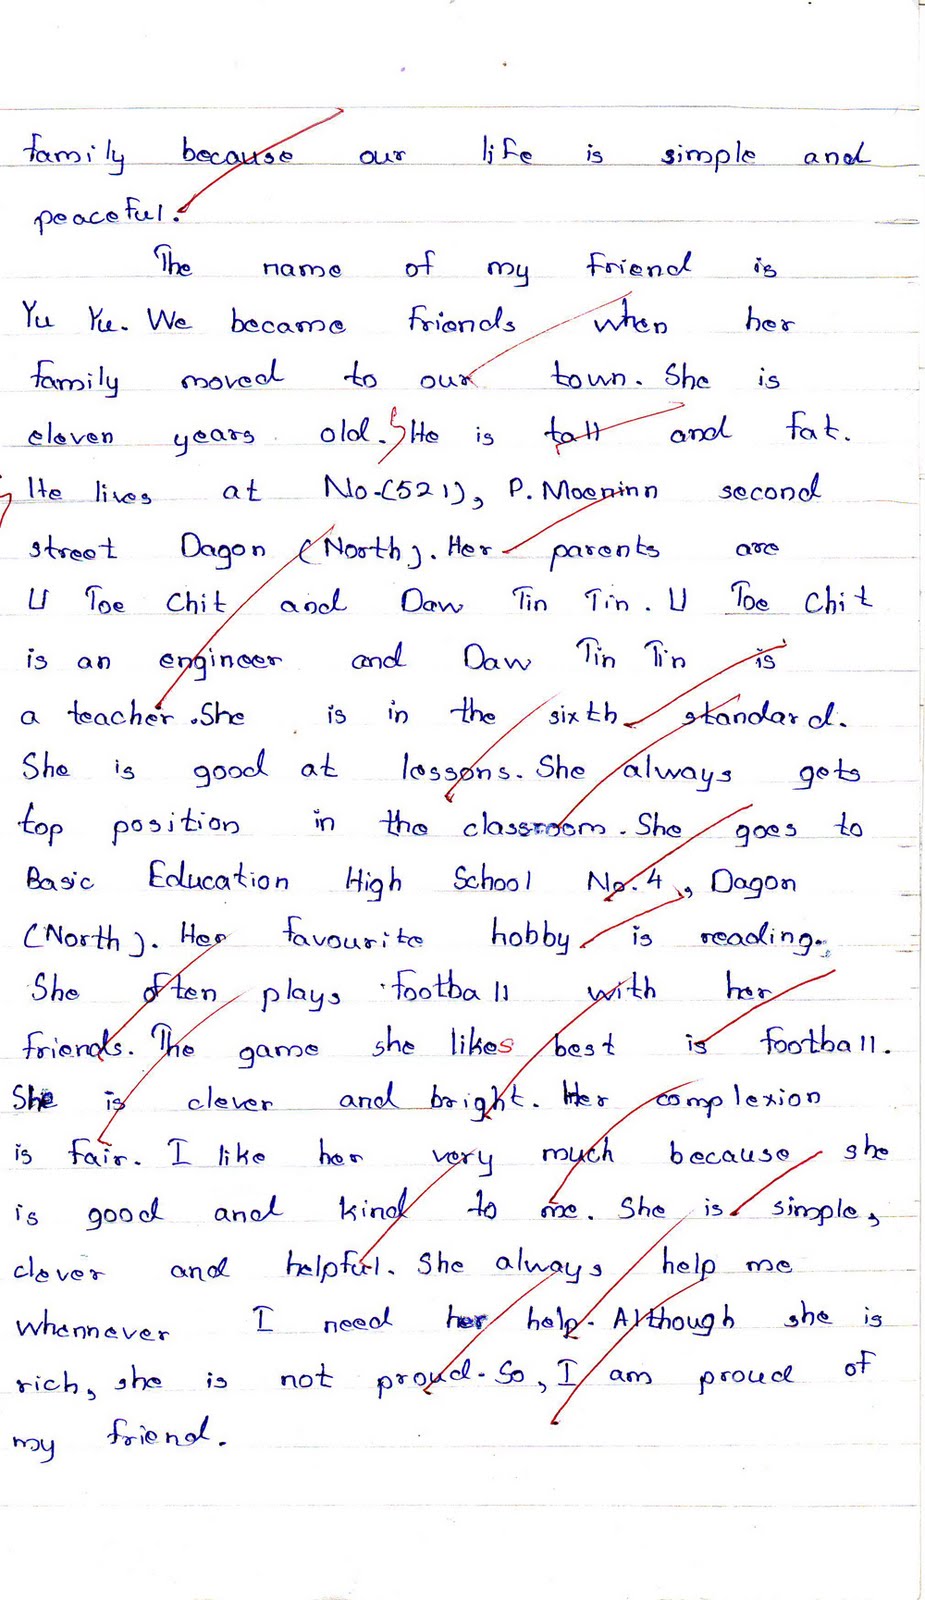 family because our life is simple and
peaceful.
The name of my friend is
Yu Yu. We became friends when her
family moved to our town. She is
eleven years old. SHe is tall and fat.
He lives at No.(521), P. Moeninn second
street Dagon (North). Her parents are
U Toe Chit and Daw Tin Tin. U Toe Chit
is an engineer and Daw Tin Tin is
a teacher. She is in the sixth standard.
She is good at lessons. She always gets
top position in the classroom. She goes to
Basic Education High School No.4, Dagon
(North). Her favourite hobby is reading.
She often plays football with her
friends. The game she likes best is football.
She is clever and bright. Her complexion
is fair. I like her very much because she
is good and kind to me. She is simple,
clever and helpful. She always help me
whennever I need her help. Although she is
rich, she is not proud. So, I am proud of
my friend.